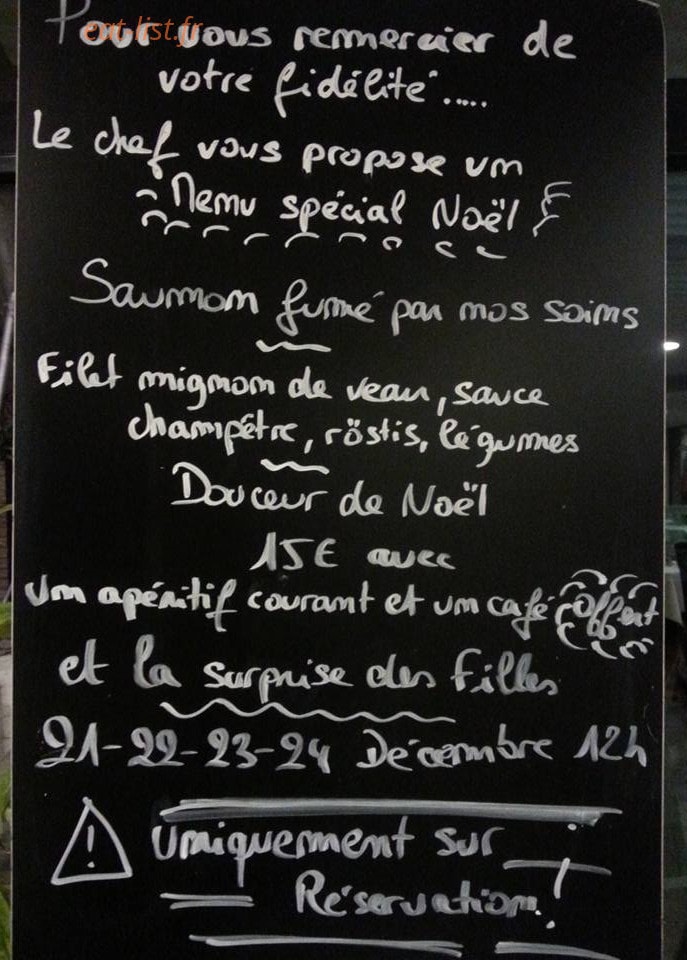 eat-list.fr
Pour vous remercier de
votre fidélité.....
Le chef vous propose un
Menu spécial Noël
Saumon fumé par nos soins
Filet mignon de veau, sauce
champêtre, röstis, légumes
Douceur de Noël
15€ avec
Un apéritif courant et un café offert
et la surprise des filles
21-22-23-24 Décembre 12h
! Uniquement sur
Réservation!